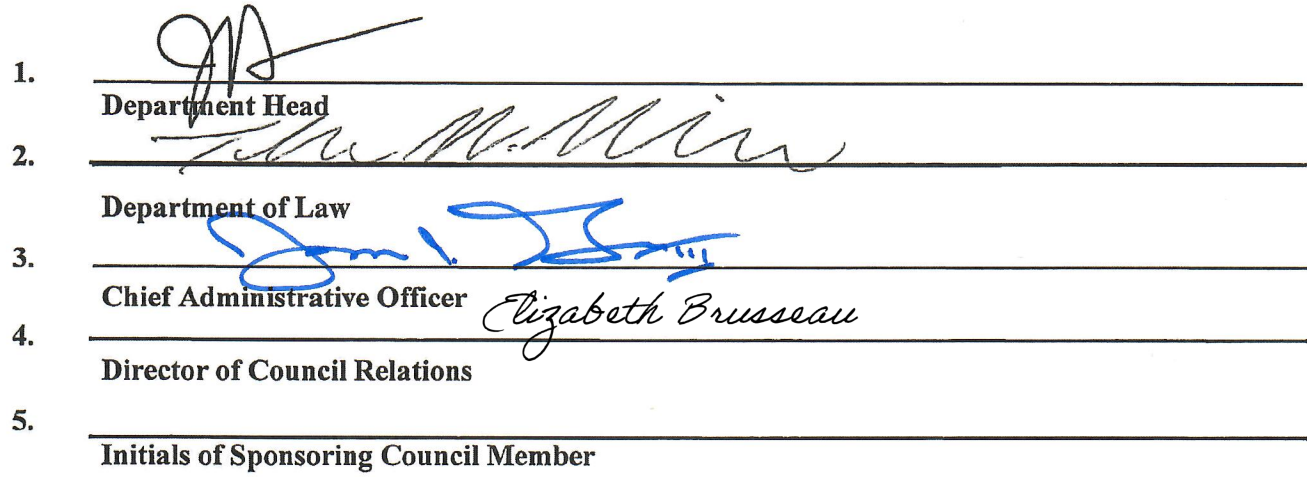 1.
Department Head
2.
Department of Law
3.
Chief Administrative Officer
Elizabeth Brusseau
4.
Director of Council Relations
5.
Initials of Sponsoring Council Member